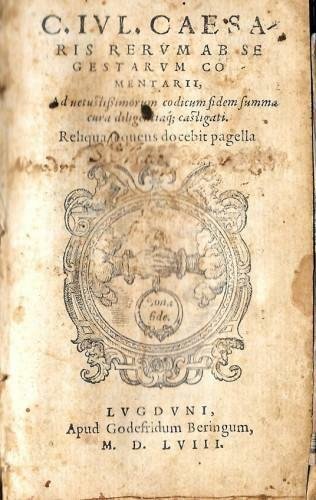 C. IVL. CAESA-
RIS RERVM AB SE
GESTARVM CO
MENTARII,
Ad uetustissimorum codicum fidem summa
cura diligentiaq; castigati.
Reliqua sequens docebit pagella
bona
fide.
LVGDVNI,
Apud Godefridum Beringum,
M. D. LVIII.